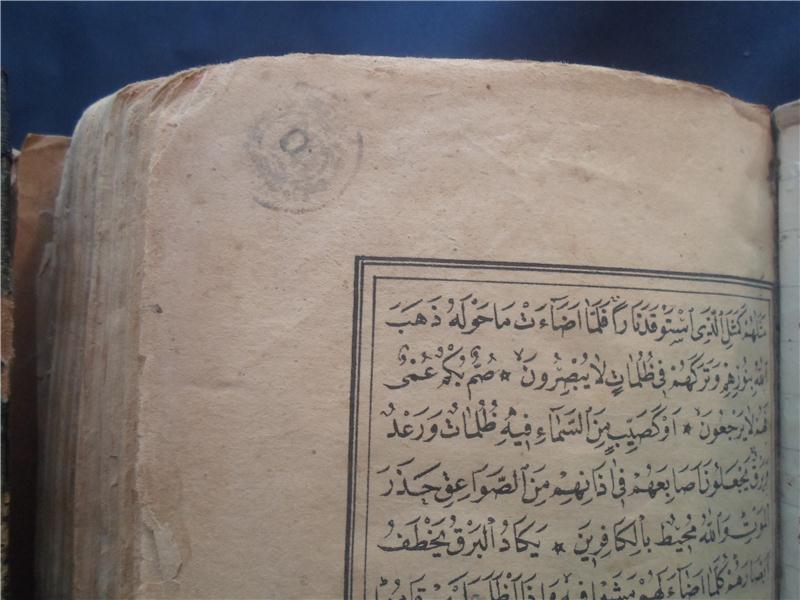 مَثَلُهُمْ كَمَثَلِ الَّذِى اسْتَوْقَدَ نَارًا فَلَمَّا اَضَٓاءَتْ مَا حَوْلَهُ ذَهَبَ
اللّٰهُ بِنُورِهِمْ وَتَرَكَهُمْ فِى ظُلُمَاتٍ لَا يُبْصِرُونَ * صُمٌّ بُكْمٌ عُمْىٌ
فَهُمْ لَا يَرْجِعُونَ * اَوْ كَصَيِّبٍ مِنَ السَّمَٓاءِ فِيهِ ظُلُمَاتٌ وَرَعْدٌ
وَبَرْقٌ يَجْعَلُونَ اَصَابِعَهُمْ فِى اٰذَانِهِمْ مِنَ الصَّوَاعِقِ حَذَرَ
الْمَوْتِ وَاللّٰهُ مُحِيطٌ بِالْكَافِرِينَ * يَكَادُ الْبَرْقُ يَخْطَفُ
اَبْصَارَهُمْ كُلَّمَا اَضَٓاءَ لَهُمْ مَشَوْا فِيهِ وَاِذَا اَظْلَمَ عَلَيْهِمْ قَامُوا